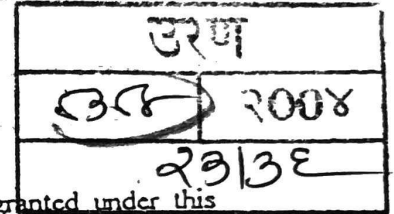 उरण
२००४
२३|३६
granted under this